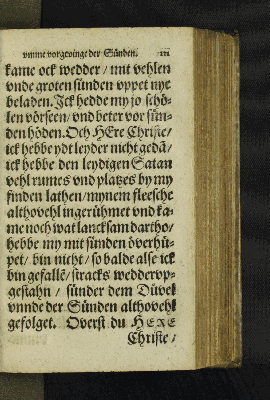 vmme vorgevinge der Sünden. 111
kame ock wedder / mit vehlen
vnde groten sünden vppet nye
beladen. Ick hedde my jo schö-
len vörseen / vnd beter vor sün-
den höden. Och HEre Christe /
ick hebbe ydt leyder nicht gedā /
ick hebbe den leydigen Satan
vehl rumes vnd platzes by my
finden lathen / mynem fleesche
althovehl ingerühmet vnd ka-
me noch wat lancksam dartho /
hebbe my mit sünden överhü-
pet / bin nicht / so balde alse ick
bin gefallē / stracks weddervp-
gestahn / sünder dem Düvel
vnnde der Sünden althovehl
gefolget. Överst du HERE
Christe /